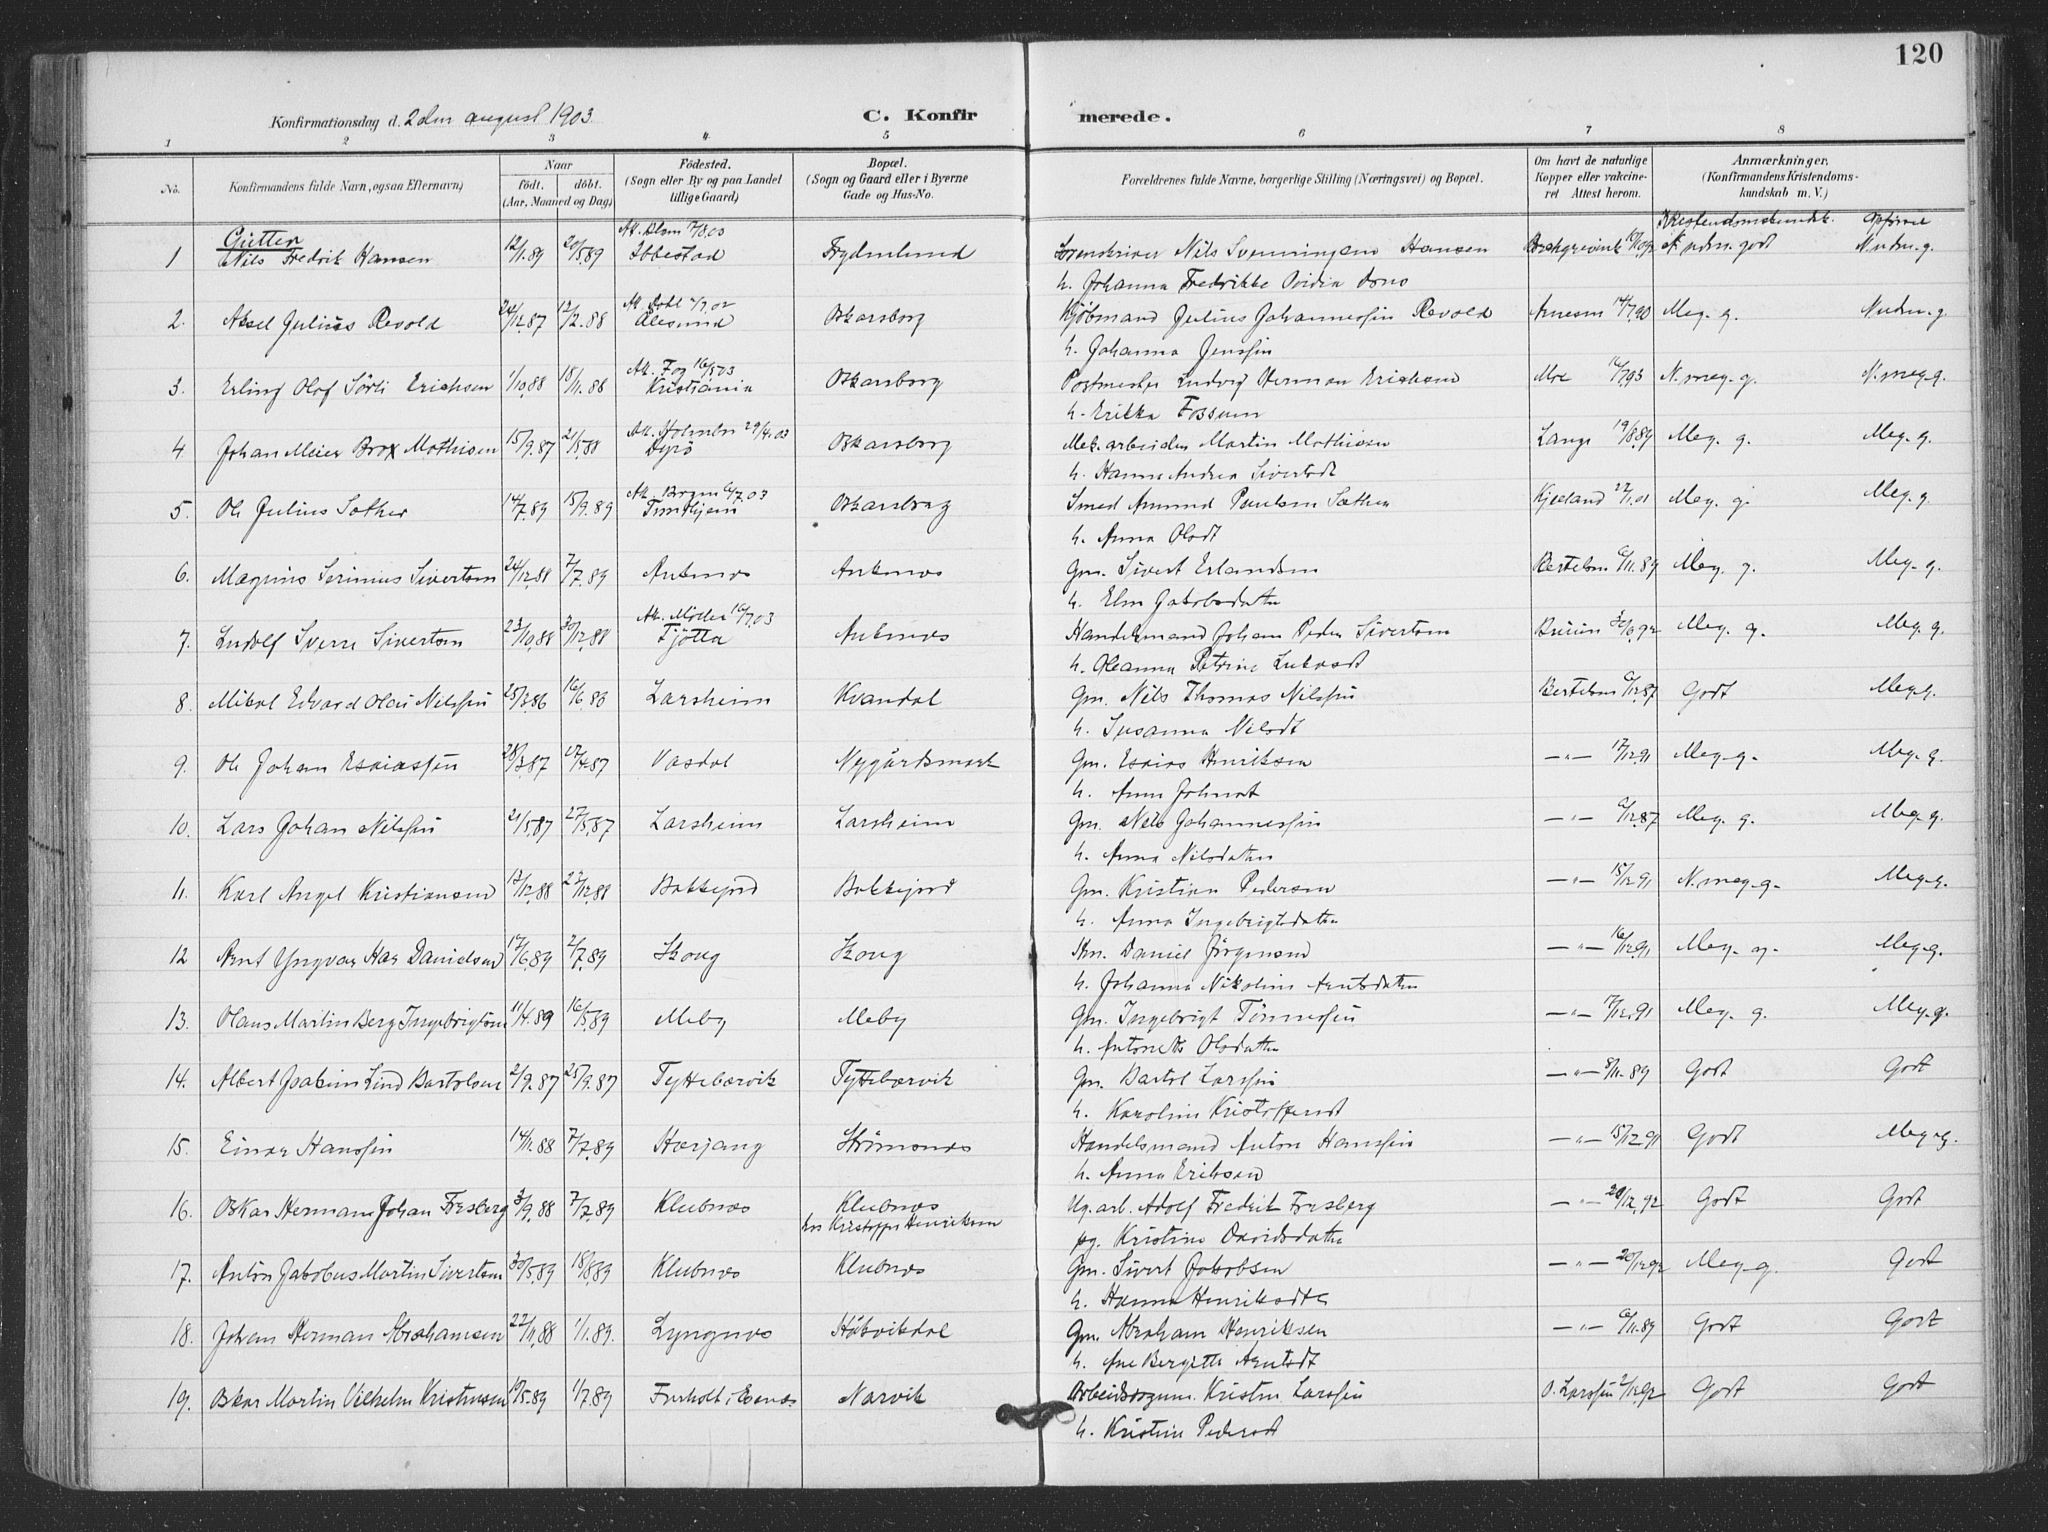 120
Konfirmationsdag d. 2den august 1903. C. Konfir merede.
1 2 3 4 5 6 7 8
No. Konfirmandens fulde Navn, ogsaa Efternavn) Naar födt. döbt. (Aar, Maaned og Dag) Födested. (Sogn eller By og paa Landet tillige Gaard) Bopæl. (Sogn og Gaard eller i Byerne Gade og Hus-No. Forældrenes fulde Navne, borgerlige Stilling (Næringsvei) og Bopæl. Om havt de naturlige Kopper eller vakcineret Attest herom. Anmærkninger. (Konfirmandens Kristendomskundskab m. V.)
Gutter
1 Nils Fredrik Hansen 12/1.89 20/5.89 Ibbestad Frydenlund Sorenskriver Nils Svenningsen Hansen N. udm. g.
h. Johanna Fredrikke
2. Aksel Julius Revold 24/12.87 12/2.88 Ålesund Oskarsborg Kjöbmand Julius Johannessen Revold Arnesen 14/7.90 Meg. g. Meg. g.
h. Johanna Jenssen
3. Erling Olaf Sörli Erichsen 1/10.88 18/11.88 Kristiania Oskarsborg Postmester Ludvig Herman Erichsen Moe 16/7.93 N. meg. g. N. meg. g.
h. Erikka Fossum
4 Johan Meier Brox Mathisen 15/9.87 21/5.88 Dyrö Oskarsborg Mek. arbeider Martin Mathisen Lange 19/8.89 Meg. g. Meg. g.
h. Hanna Andrea Sivertsdt
5. Ole Julius Sæther 14/7.89 15/9.89 Trondhjem Oskarsborg Smed Amund Paulsen Sæther Kjeland 22/1.01 Meg. g. Meg. g.
h. Anna Olsdt
6. Magnus Serinius Sivertsen 24/12.88 7/7.89 Ankenes Ankenes Gm. Sivert Erlandsen Bertelsen 6/11.89 Meg. g. Meg. g.
h. Elen Jakobsdatter
7. Ludolf Sverre Sivertsen 23/10.88 30/12.88 Tjötta Ankenes Handelsmand Johan Peder Sivertsen 30/6.92 Meg. g. Meg. g.
h. Oleanna Petrine
8. Mikal Edvard Olai Nilssen 25/3.86 16/6.86 Larsheim Kvandal Gm. Nils Thomas Nilssen Bertelsen 6/12.87 Godt Meg. g.
h. Susanna Nilsdt
9. Ole Johan Esaiassen 28/3.87 Vasdal Nygårdsmark Gm. Esaias Henriksen — „ — 17/12.91 Meg. g. Meg. g.
h. Anna Johnsdt
10. Lars Johan Nilssen 21/5.87 27/5.87 Larsheim Larsheim Gm. Nils Johannessen — „ — 6/12.87 Meg. g. Meg. g.
h. Anna Nilsdatter
11. Karl Angel Kristiansen 13/12.88 23/12.88 Bakkejord Bakkejord Gm. Kristian Pedersen — „ — 15/12.91 N. meg. g. Meg. g.
h. Anna Ingebrigtsdatter
12 Arnt Yngvar Daniélsen 17/6.89 7/7.89 Skoug Skoug Daniel Jörgensen — „ — 16/12.91 Meg. g. Meg. g.
h. Johanna Nikoline Arntsdatter
13. Olaus Martin Berg Ingebrigtsen 11/4.89 16/5.89 Meby Meby Gm. Ingebrigt Tönnessen — „ — 17/12.91 Meg. g. Meg. g.
h. Antonette Olsdatter
14. Albert Joakim Lind Bartolsen 2/9.87 25/9.87 Tyttebærvik Tyttebærvik Gm. Bartol Larssen — „ — 8/11.89 Godt Godt
h. Karoline Kristoffersdt
15. Einar Hanssen 14/11.88 7/7.89 Herjang Strömsnes Handelsmand Anton Hanssen — „ — 15/12.91 Godt Meg. g.
h. Anna Eriksen
16. Oskar Herman Johan Forsberg 3/9.88 7/7.89 Klubnes Klubnes Adolf Fredrik Forsberg — „ — 20/12.92 Godt Godt
hos Kristoffer Henriksen pg. Kristine Davidsdatter
17. Anton Jakobus Martin Sivertsen 30/5.89 18/8.89 Klubnes Klubnes Gm. Sivert Jakobsen — „ — 20/12.92 Meg. g. Godt
h. Hanna Henriksdtr
18. Johan Herman Abrahamsen 22/11.88 1/1.89. Lyngnes Håkvikdal Gm. Abraham Henriksen — „ — 6/11.89 Godt Godt
h. Ane Bergitte Arntsdt
19. Oskar Martin Vilhelm Kristensen 19/5.89 1/7.89 Furholt i Evenes Narvik Kristen Larssen O. Larssen 2/12.92 Godt Godt
h. Kristine Pedersdt